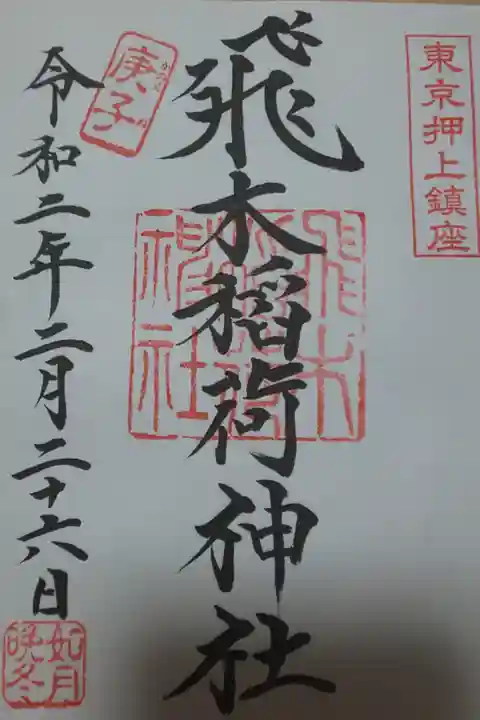 東京押上鎮座
飛木稲荷神社
飛木稲荷神社
庚子
令和二年二月二十六日
如月
晩冬